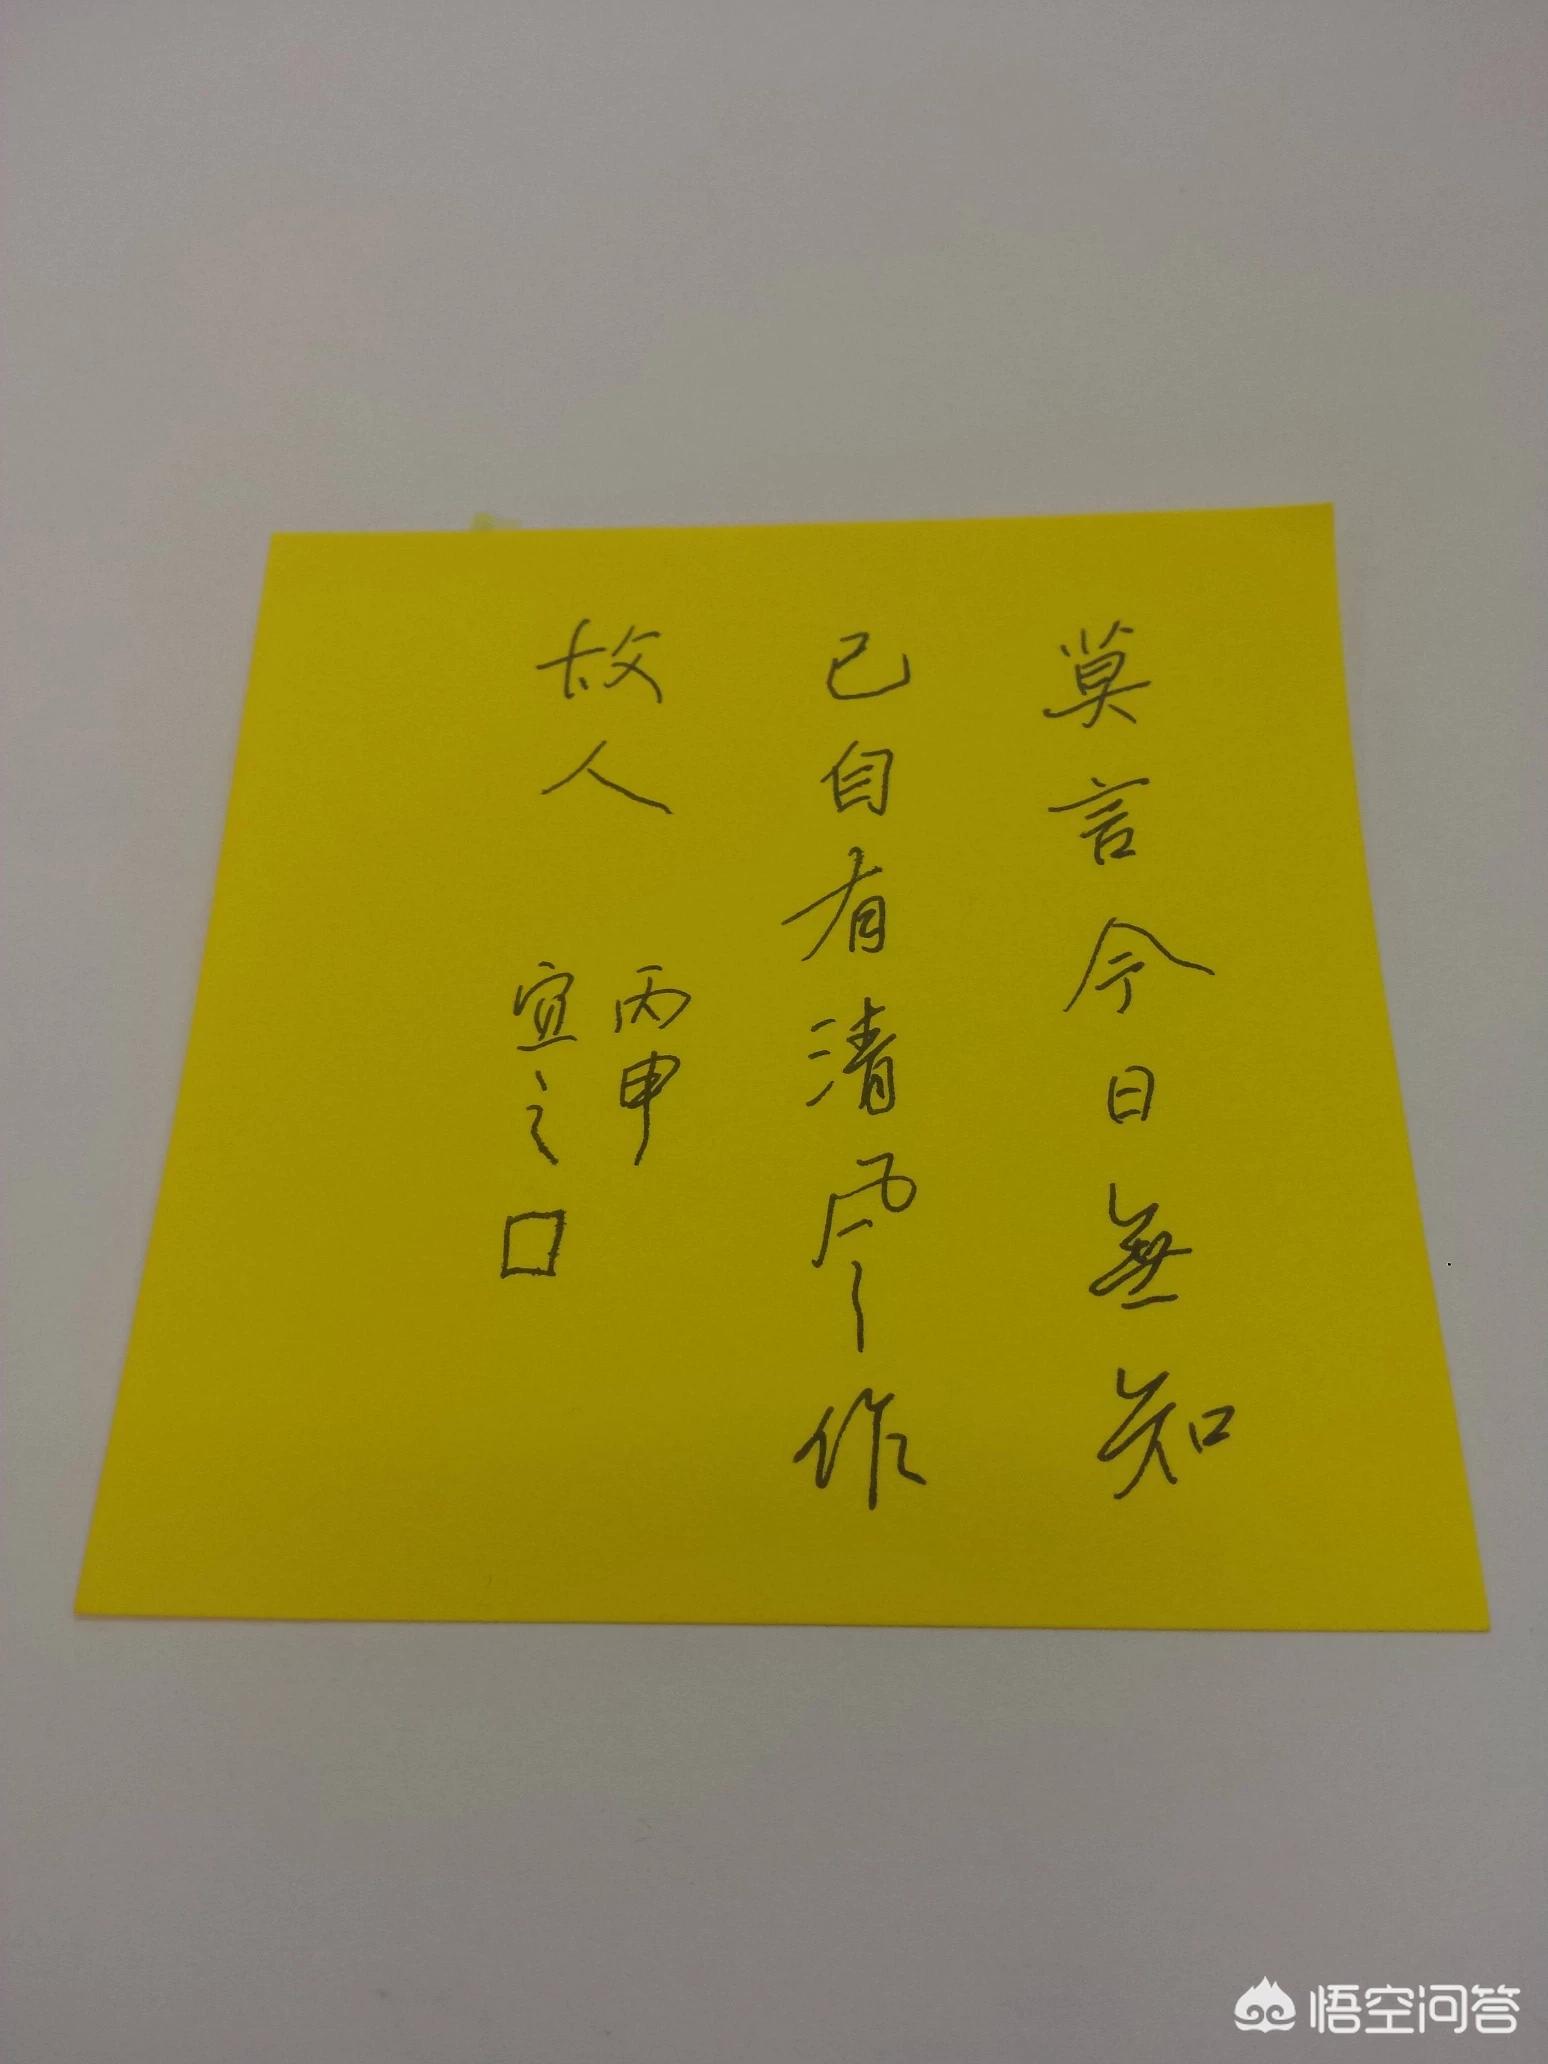 莫言今日無知
已自有清风作
故人
丙申
宜之
悟空问答